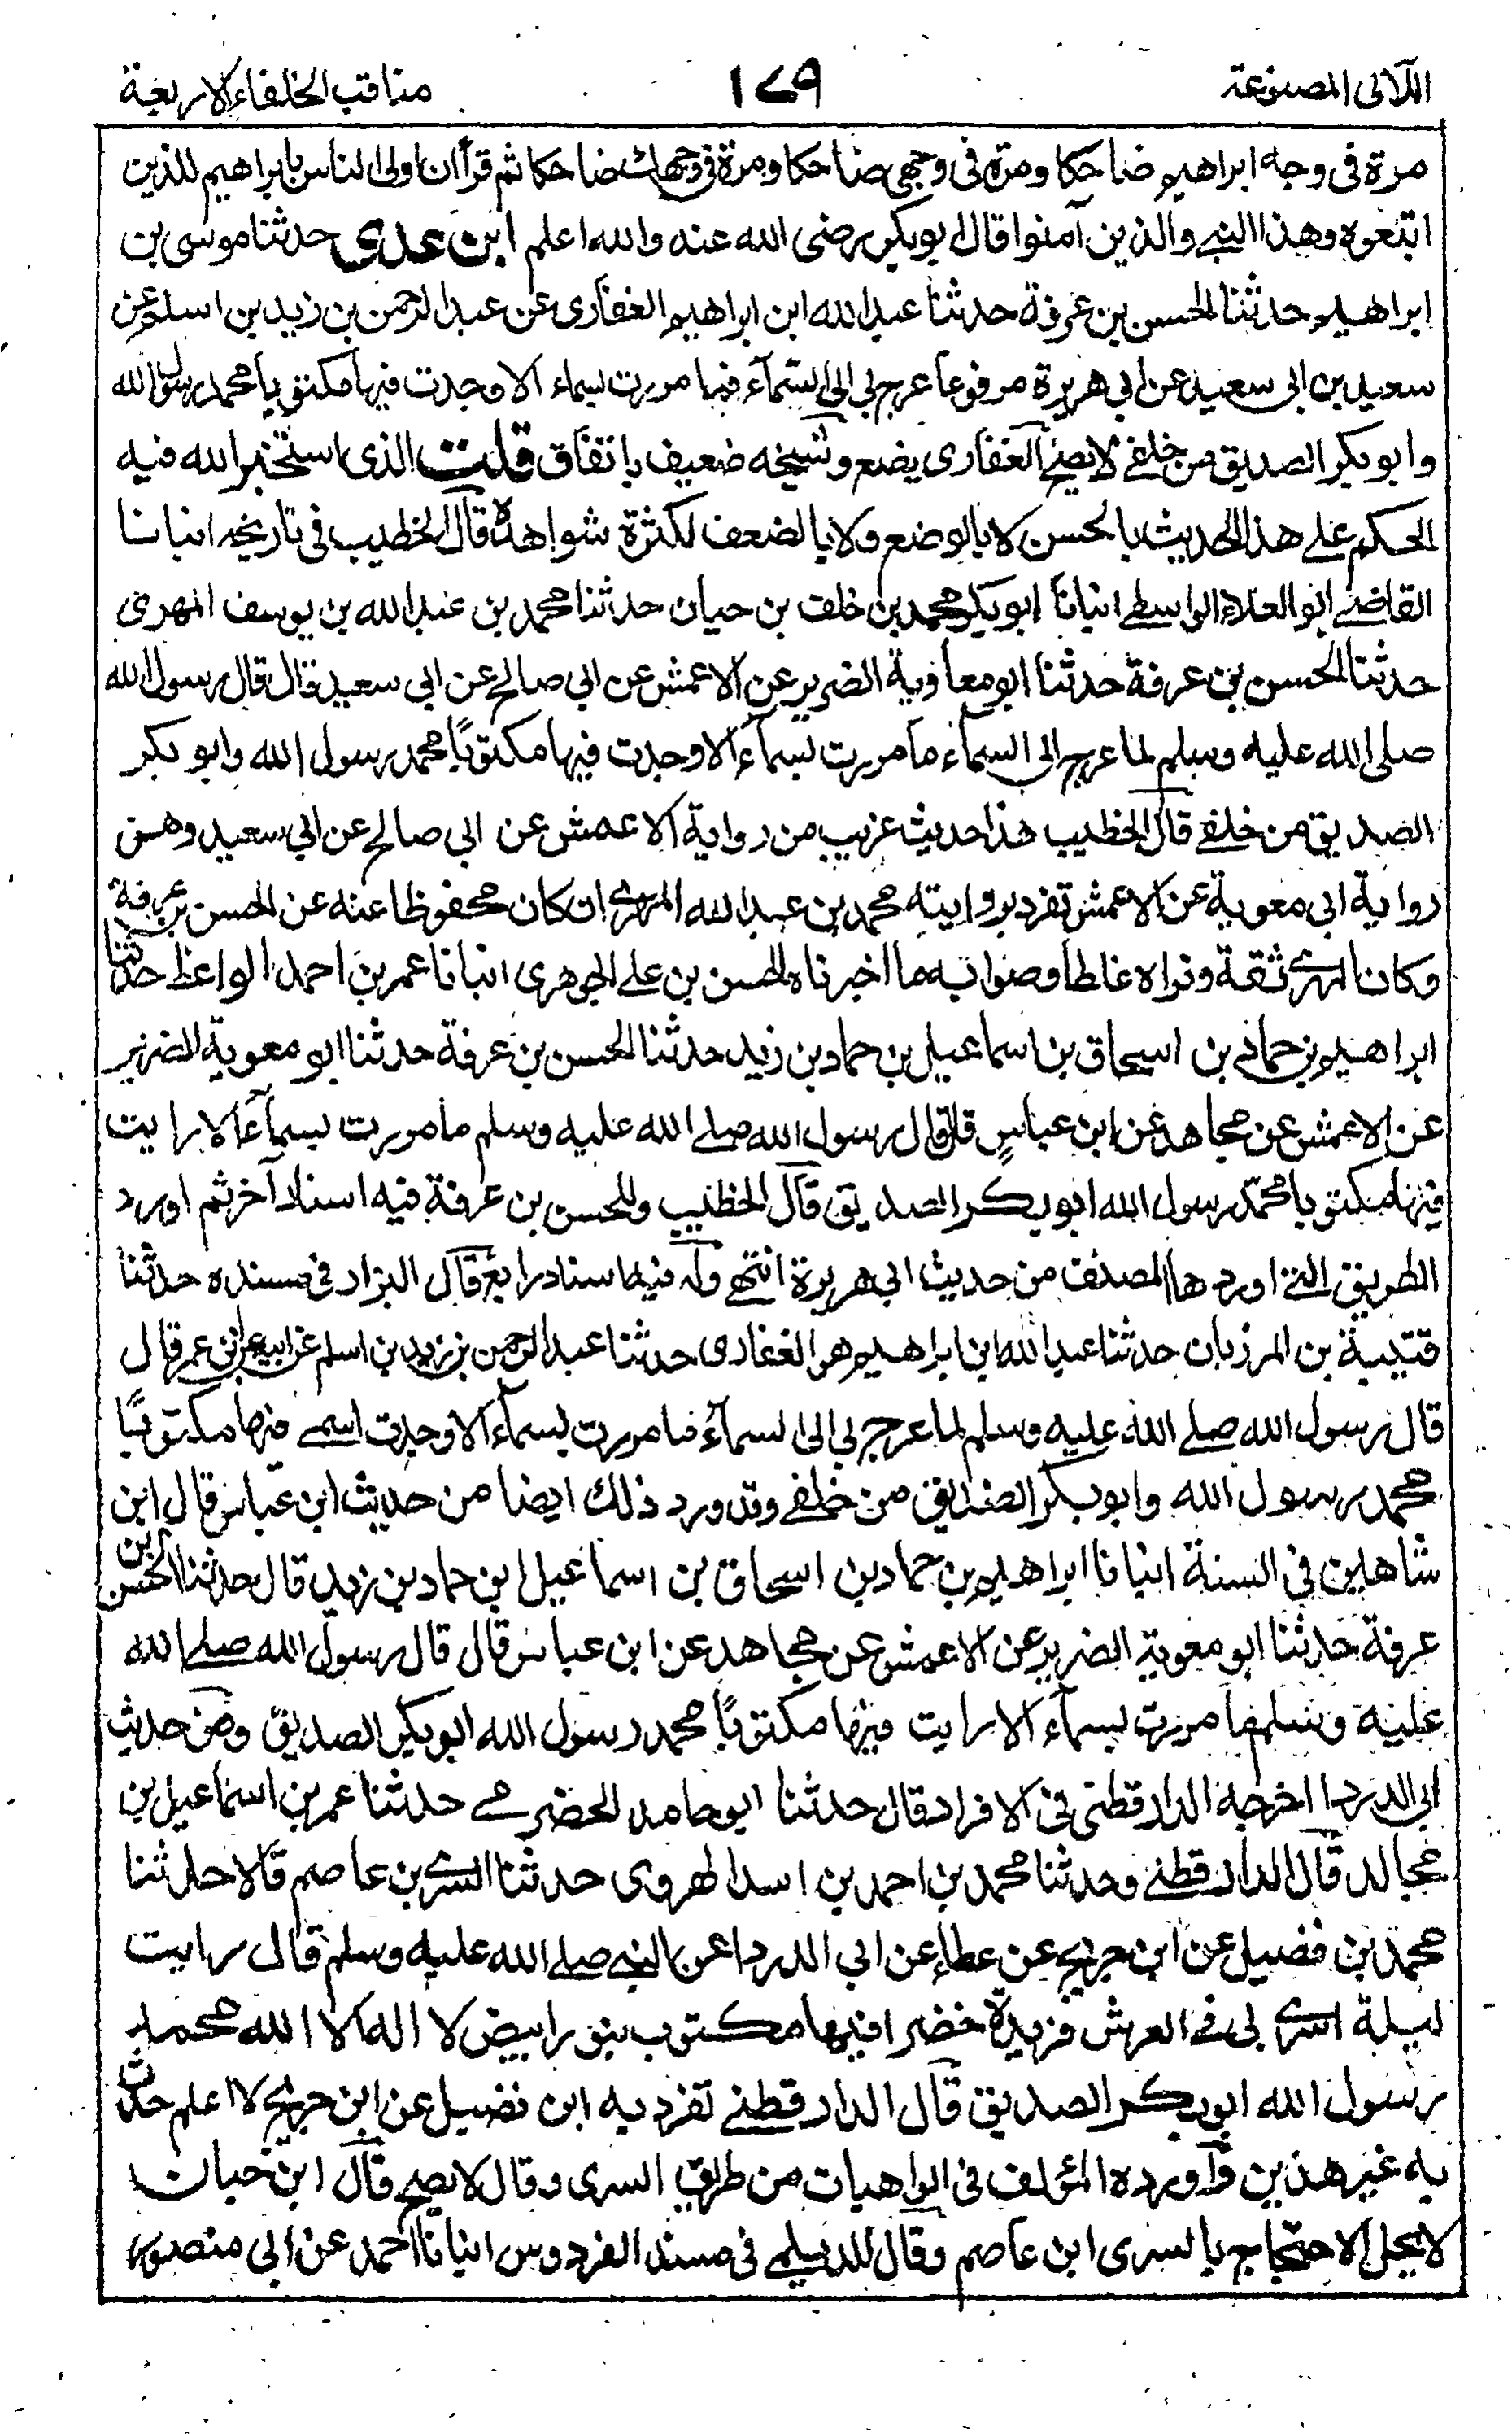 اللآلى المصنوعة ١٧٩ مناقب الخلفاء الاربعة
مرة فى وجه ابراهيم ضاحكا ومرة فى وجهى ضاحكا ومرة فى وجهك ضاحكا ثم قرأ ان اولى الناس بابراهيم للذين
اتبعوه وهذا النبي والذين آمنوا قال ابو بكر رضى الله عنه والله اعلم ابن عدى حدثنا موسى بن
ابراهيم حدثنا الحسن بن عرفة حدثنا عبد الله ابن ابراهيم الغفارى عن عبد الرحمن بن زيد بن اسلم عن
سعيد بن ابى سعيد عن ابى هريرة مرفوعا عرج بى الى السمآء فما مررت بسماء الا وجدت فيها مكتوبا محمد رسول الله
وابو بكر الصديق من خلفى لا يصح الغفارى يضع وشيخه ضعيف باتفاق قلت الذى استخير الله فيه
الحكم على هذا الحديث بالحسن لا بالوضع ولا بالضعف لكثرة شواهده قال الخطيب فى تاريخه انبانا
القاضى ابو العلاء الواسطى انبانا ابو بكر محمد بن خلف بن حيان حدثنا محمد بن عبد الله بن يوسف المهرى
حدثنا الحسن بن عرفة حدثنا ابو معاوية الضرير عن الاعمش عن ابى صالح عن ابى سعيد قال قال رسول الله
صلى الله عليه وسلم لما عرج الى السمآء ما مررت بسمآء الا وجدت فيها مكتوبًا محمد رسول الله وابو بكر
الصديق من خلفى قال الخطيب هذا حديث غريب من رواية الاعمش عن ابى صالح عن ابى سعيد ومن
رواية ابى معوية عن الاعمش تفرد بروايته محمد بن عبد الله المهرى ان كان محفوظا عنه عن الحسن بن عرفة
وكان المهرى ثقة ونراه غلطا وصوابه ما اخبرناه الحسن بن على الجوهرى انبانا عمر بن احمد الواعظ حدثنا
ابراهيم بن حماد بن اسحاق بن اسماعيل بن حماد بن زيد حدثنا الحسن بن عرفة حدثنا ابو معوية الضرير
عن الاعمش عن مجاهد عن ابن عباسٍ قال قال رسول الله صلى الله عليه وسلم ما مررت بسمآء الا رايت
فيها مكتوبا محمد رسول الله ابو بكر الصديق قال الخطيب وللحسن بن عرفة فيه اسناد آخر ثم اورد
الطريق التى اوردها المصنف من حديث ابى هريرة انتهى وله فيه اسناد رابع قال البزار فى مسنده حدثنا
قتيبة بن المرزبان حدثنا عبد الله ابن ابراهيم هو الغفارى حدثنا عبد الرحمن بن زيد بن اسلم عن ابيه عن ابن عمر قال
قال رسول الله صلى الله عليه وسلم لما عرج بى الى السمآء ما مررت بسمآء الا وجدت اسمى فيها مكتوبًا
محمد رسول الله وابو بكر الصديق من خلفى وقد ورد ذلك ايضا من حديث ابن عباس قال ابن
شاهين فى السنة انبانا ابراهيم بن حماد بن اسحاق بن اسماعيل ابن حماد بن زيد قال حدثنا الحسن بن
عرفة حدثنا ابو معوية الضرير عن الاعمش عن مجاهد عن ابن عباس قال قال رسول الله صلى الله
عليه وسلم ما مررت بسمآء الا رايت فيها مكتوبًا محمد رسول الله ابو بكر الصديق ومن حديث
ابى الدردا اخرجه الدارقطنى فى الافراد قال حدثنا ابو حامد الحضرمى حدثنا عمر بن اسماعيل بن
مجالد قال الدارقطنى وحدثنا محمد بن احمد بن اسد الهروى حدثنا السرى بن عاصم قالا حدثنا
محمد بن فضيل عن ابن جريج عن عطاء عن ابى الدردا عن النبى صلى الله عليه وسلم قال رايت
ليلة اسرى بى فى العرش فريدة خضرا فيها مكتوب بنور ابيض لا اله الا الله محمد
رسول الله ابو بكر الصديق قال الدارقطنى تفرد به ابن فضيل عن ابن جريج لا اعلم حدث
به غير هذين وآورده المؤلف فى الواهيات من طريق السرى وقال لا يصح قال ابن حبان
لا يحل الاحتجاج بالسرى ابن عاصم وقال الديلمى فى مسند الفردوس انبانا احمد عن ابى منصور